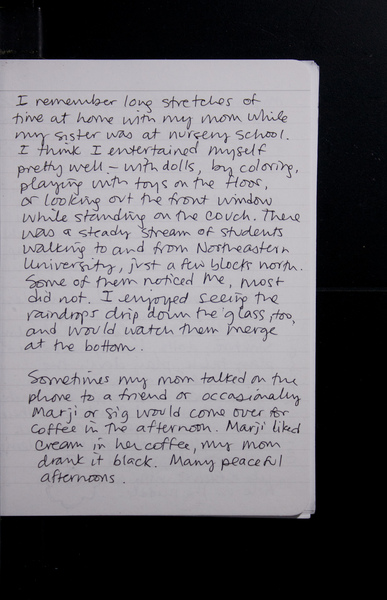 I remember long stretches of
time at home with my mom while
my sister was at nursery school.
I think I entertained myself
pretty well – with dolls, by coloring,
playing with toys on the floor,
or looking out the front window
while standing on the couch. There
was a steady stream of students
walking to and from Northeastern
University, just a few blocks north.
Some of them noticed me, most
did not. I enjoyed seeing the
raindrops drip down the glass, too,
and would watch them merge
at the bottom.

Sometimes my mom talked on the
phone to a friend or occasionally
Marji or Sig would come over for
coffee in the afternoon. Marji liked
cream in her coffee, my mom
drank it black. Many peaceful
afternoons.